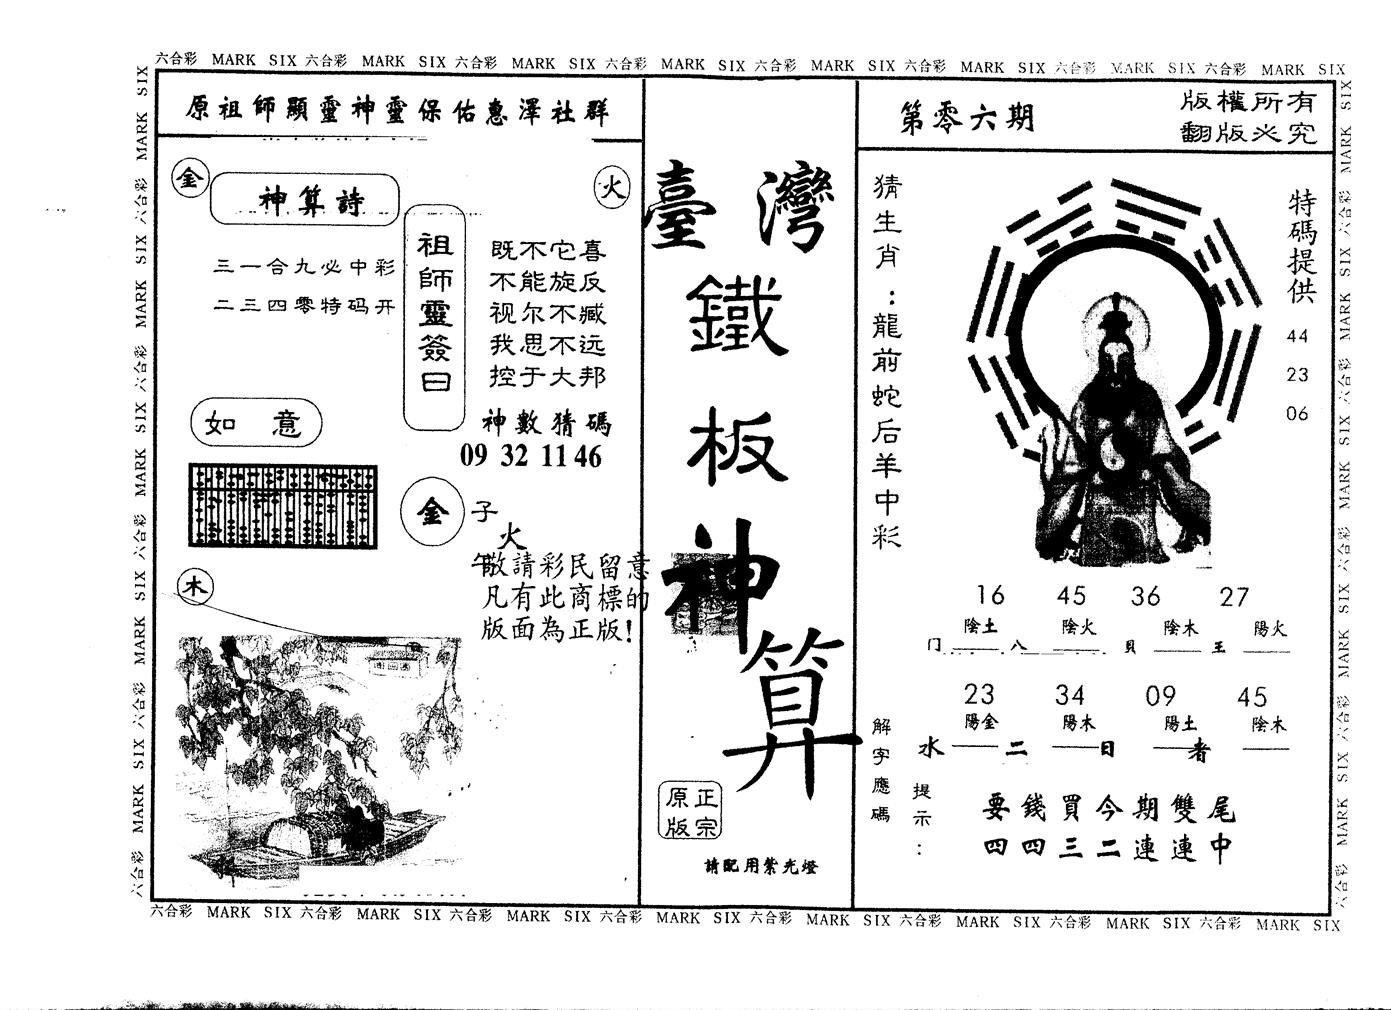 六合彩 MARK SIX 六合彩 MARK SIX 六合彩 MARK SIX 六合彩 MARK SIX 六合彩 MARK SIX 六合彩 MARK SIX 六合彩 MARK SIX 六合彩 MARK SIX
六合彩 MARK SIX 六合彩 MARK SIX 六合彩 MARK SIX 六合彩 MARK SIX 六合彩 MARK SIX
原祖師顯靈神靈保佑惠澤社群
金
神算詩
火
三一合九必中彩
二三四零特码开
祖師靈簽曰
既不它喜
不能旋反
视尔不臧
我思不远
控于大邦
神數猜碼
09 32 11 46
如 意
金
子
火
午
木
敬請彩民留意
凡有此商標的
版面為正版!
臺灣
鐵
板
神
算
正宗
原版
請配用紫光燈
第零六期
版權所有
翻版必究
猜生肖:龍前蛇后羊中彩
特碼提供
44
23
06
16 45 36 27
陰土 陰火 陰木 陽火
门 八 貝 王
23 34 09 45
陽金 陽木 陽土 陰木
水 二 日 者
解字應碼
提示:
要錢買今期雙尾
四四三二連連中
六合彩 MARK SIX 六合彩 MARK SIX 六合彩 MARK SIX 六合彩 MARK SIX 六合彩 MARK SIX
六合彩 MARK SIX 六合彩 MARK SIX 六合彩 MARK SIX 六合彩 MARK SIX 六合彩 MARK SIX 六合彩 MARK SIX 六合彩 MARK SIX 六合彩 MARK SIX